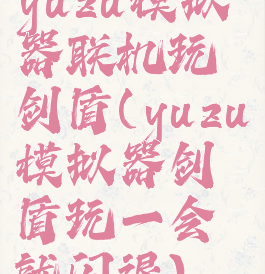 yuzu模拟
器联机玩
剑盾(yuzu
模拟器剑
盾玩一会
就闪退)